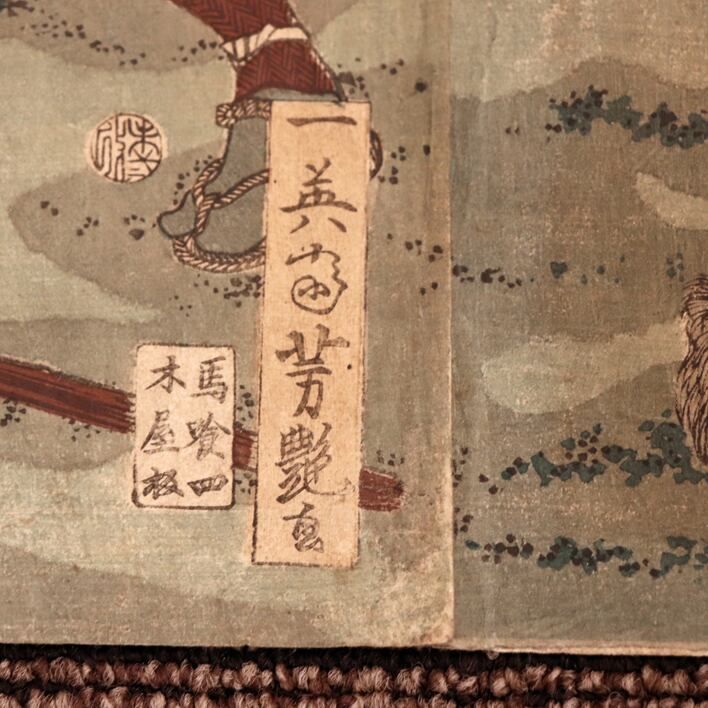 一英斎芳艶画
馬喰四
木屋板